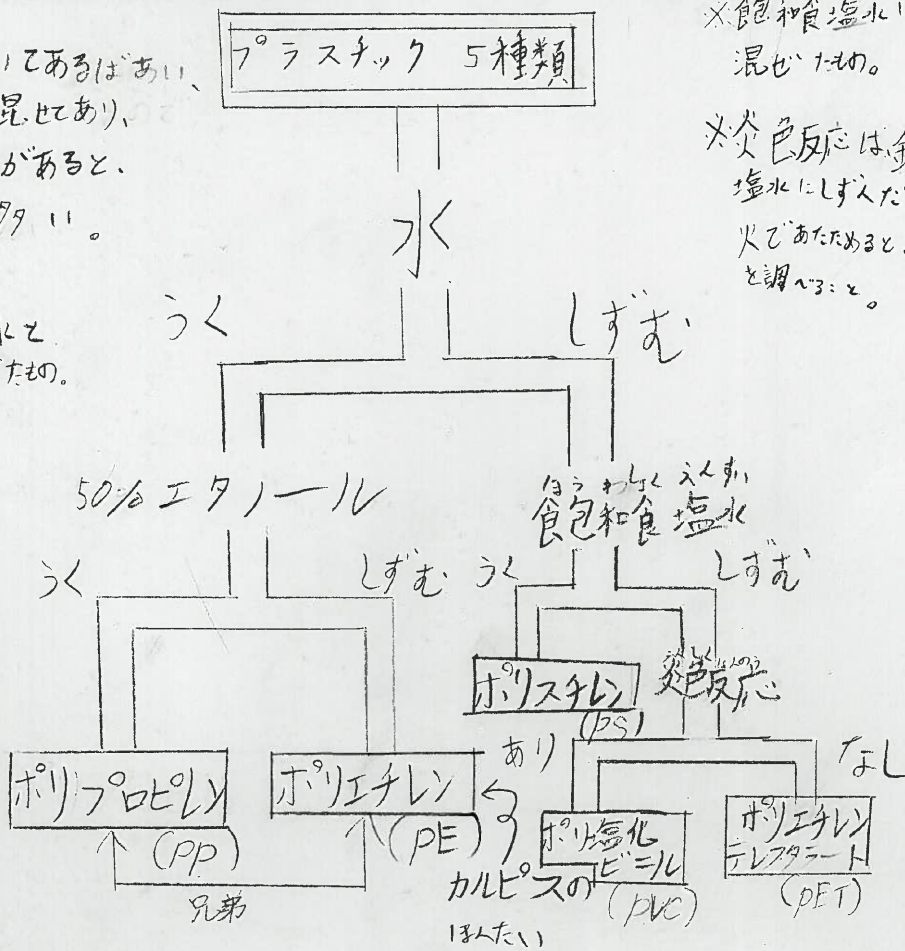 プラスチック 5種類
いてあるばあい、
混せてあり、
があると、
い。
水と
たもの。
※飽和食塩水
混ぜたもの。
※炎色反応は
塩水にしずんだ
火であたためると、
を調べること。
水
うく
しずむ
50%エタノール
ほうわしょくえんすい
飽和食塩水
うく
しずむ
うく
しずむ
ポリスチレン
(PS)
炎色反応
あり
なし
ポリプロピレン
(PP)
ポリエチレン
(PE)
ポリ塩化
ビニール
(PVC)
ポリエチレン
テレフタラート
(PET)
兄弟
カルピスの
ほんたい